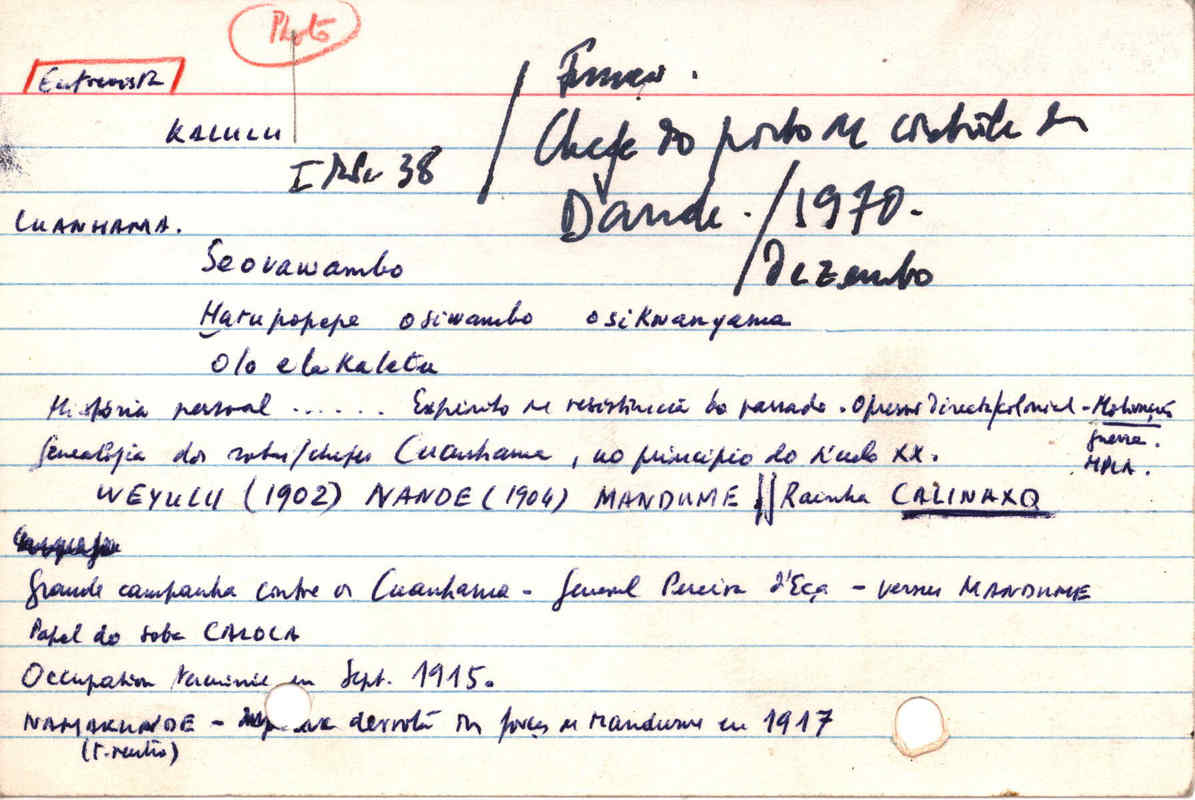 Photo
Entrevista
KALULU
I 38
Funções.
Chefe do posto de controle de
Dande. / 1970.
Dezembro
CUANHAMA.
Seovawambo
Hatupopepe osiwambo osikwanyama
Olo
História pessoal ...... Espírito de resistência do passado. Opressão directa/colonial - Motivação
guerra.
MPLA.
Genealogia dos sobas/chefes Cuanhama, no princípio do século XX.
WEYULU (1902) NANDE (1904) MANDUME || Rainha CALINAXO
Grande campanha contra os Cuanhama - General Pereira d'Eça - versus MANDUME
Papel do soba CALOLA
Occupation terminée en Sept. 1915.
NAMAKUNDE - derrota das forças de Mandume en 1917